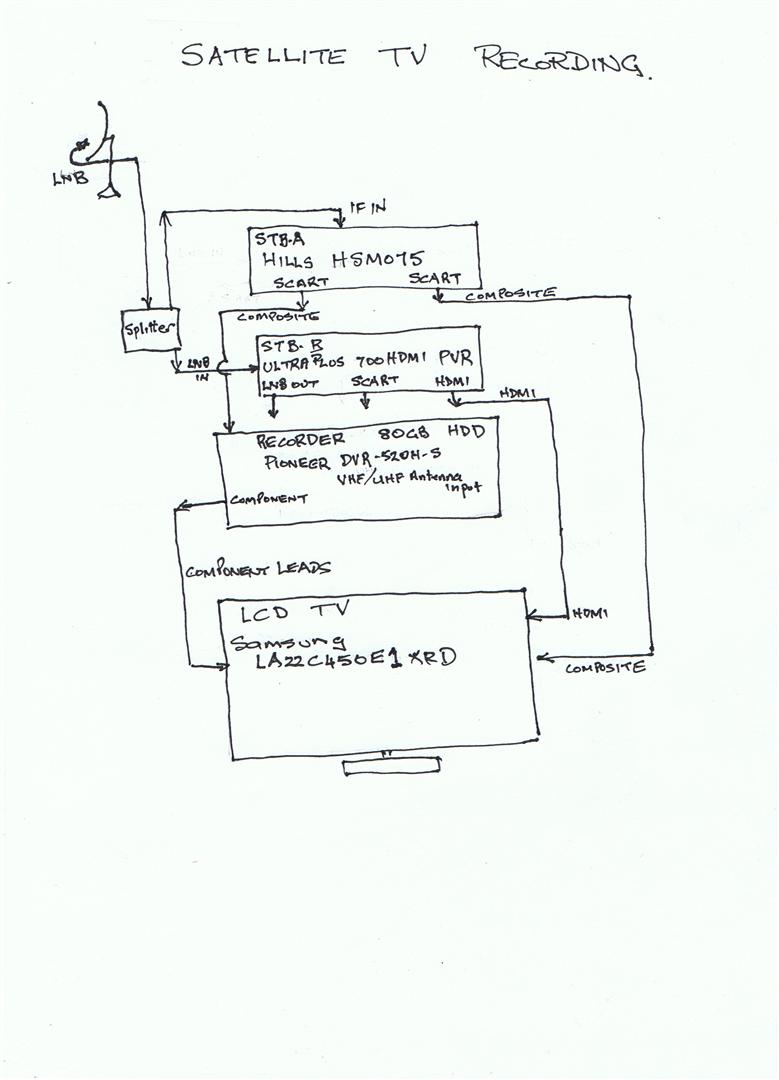 SATELLITE TV RECORDING.
LNB
IF IN
STB-A
HILLS HSM075
SCART SCART
COMPOSITE
COMPOSITE
Splitter
STB-B
ULTRA PLUS 700HDMI PVR
LNB IN
LNB OUT SCART HDMI
HDMI
RECORDER 80GB HDD
PIONEER DVR-520H-S
VHF/UHF Antenna
input
COMPONENT
COMPONENT LEADS
LCD TV
HDMI
Samsung
LA22C450E1XRD
COMPOSITE